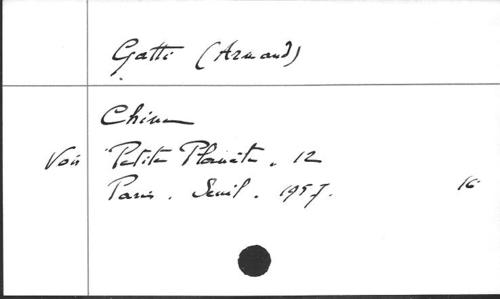 Gatti (Armand)
Chine
Voir Petite Planète. 12
Paris. Seuil. 1957.
16